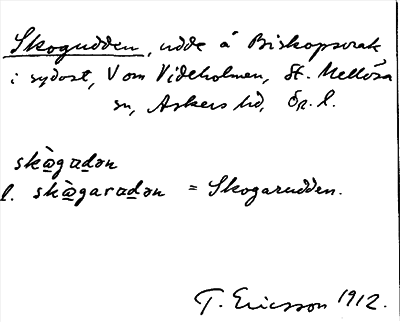 Skogudden, udde å Biskopsvrak
i sydost, V om Videholmen, St. Mellösa
sn, Askers hd, Ör. l.
skò̱gɑdən
l. skò̱garɑdən = Skogarudden.
T. Ericsson 1912.